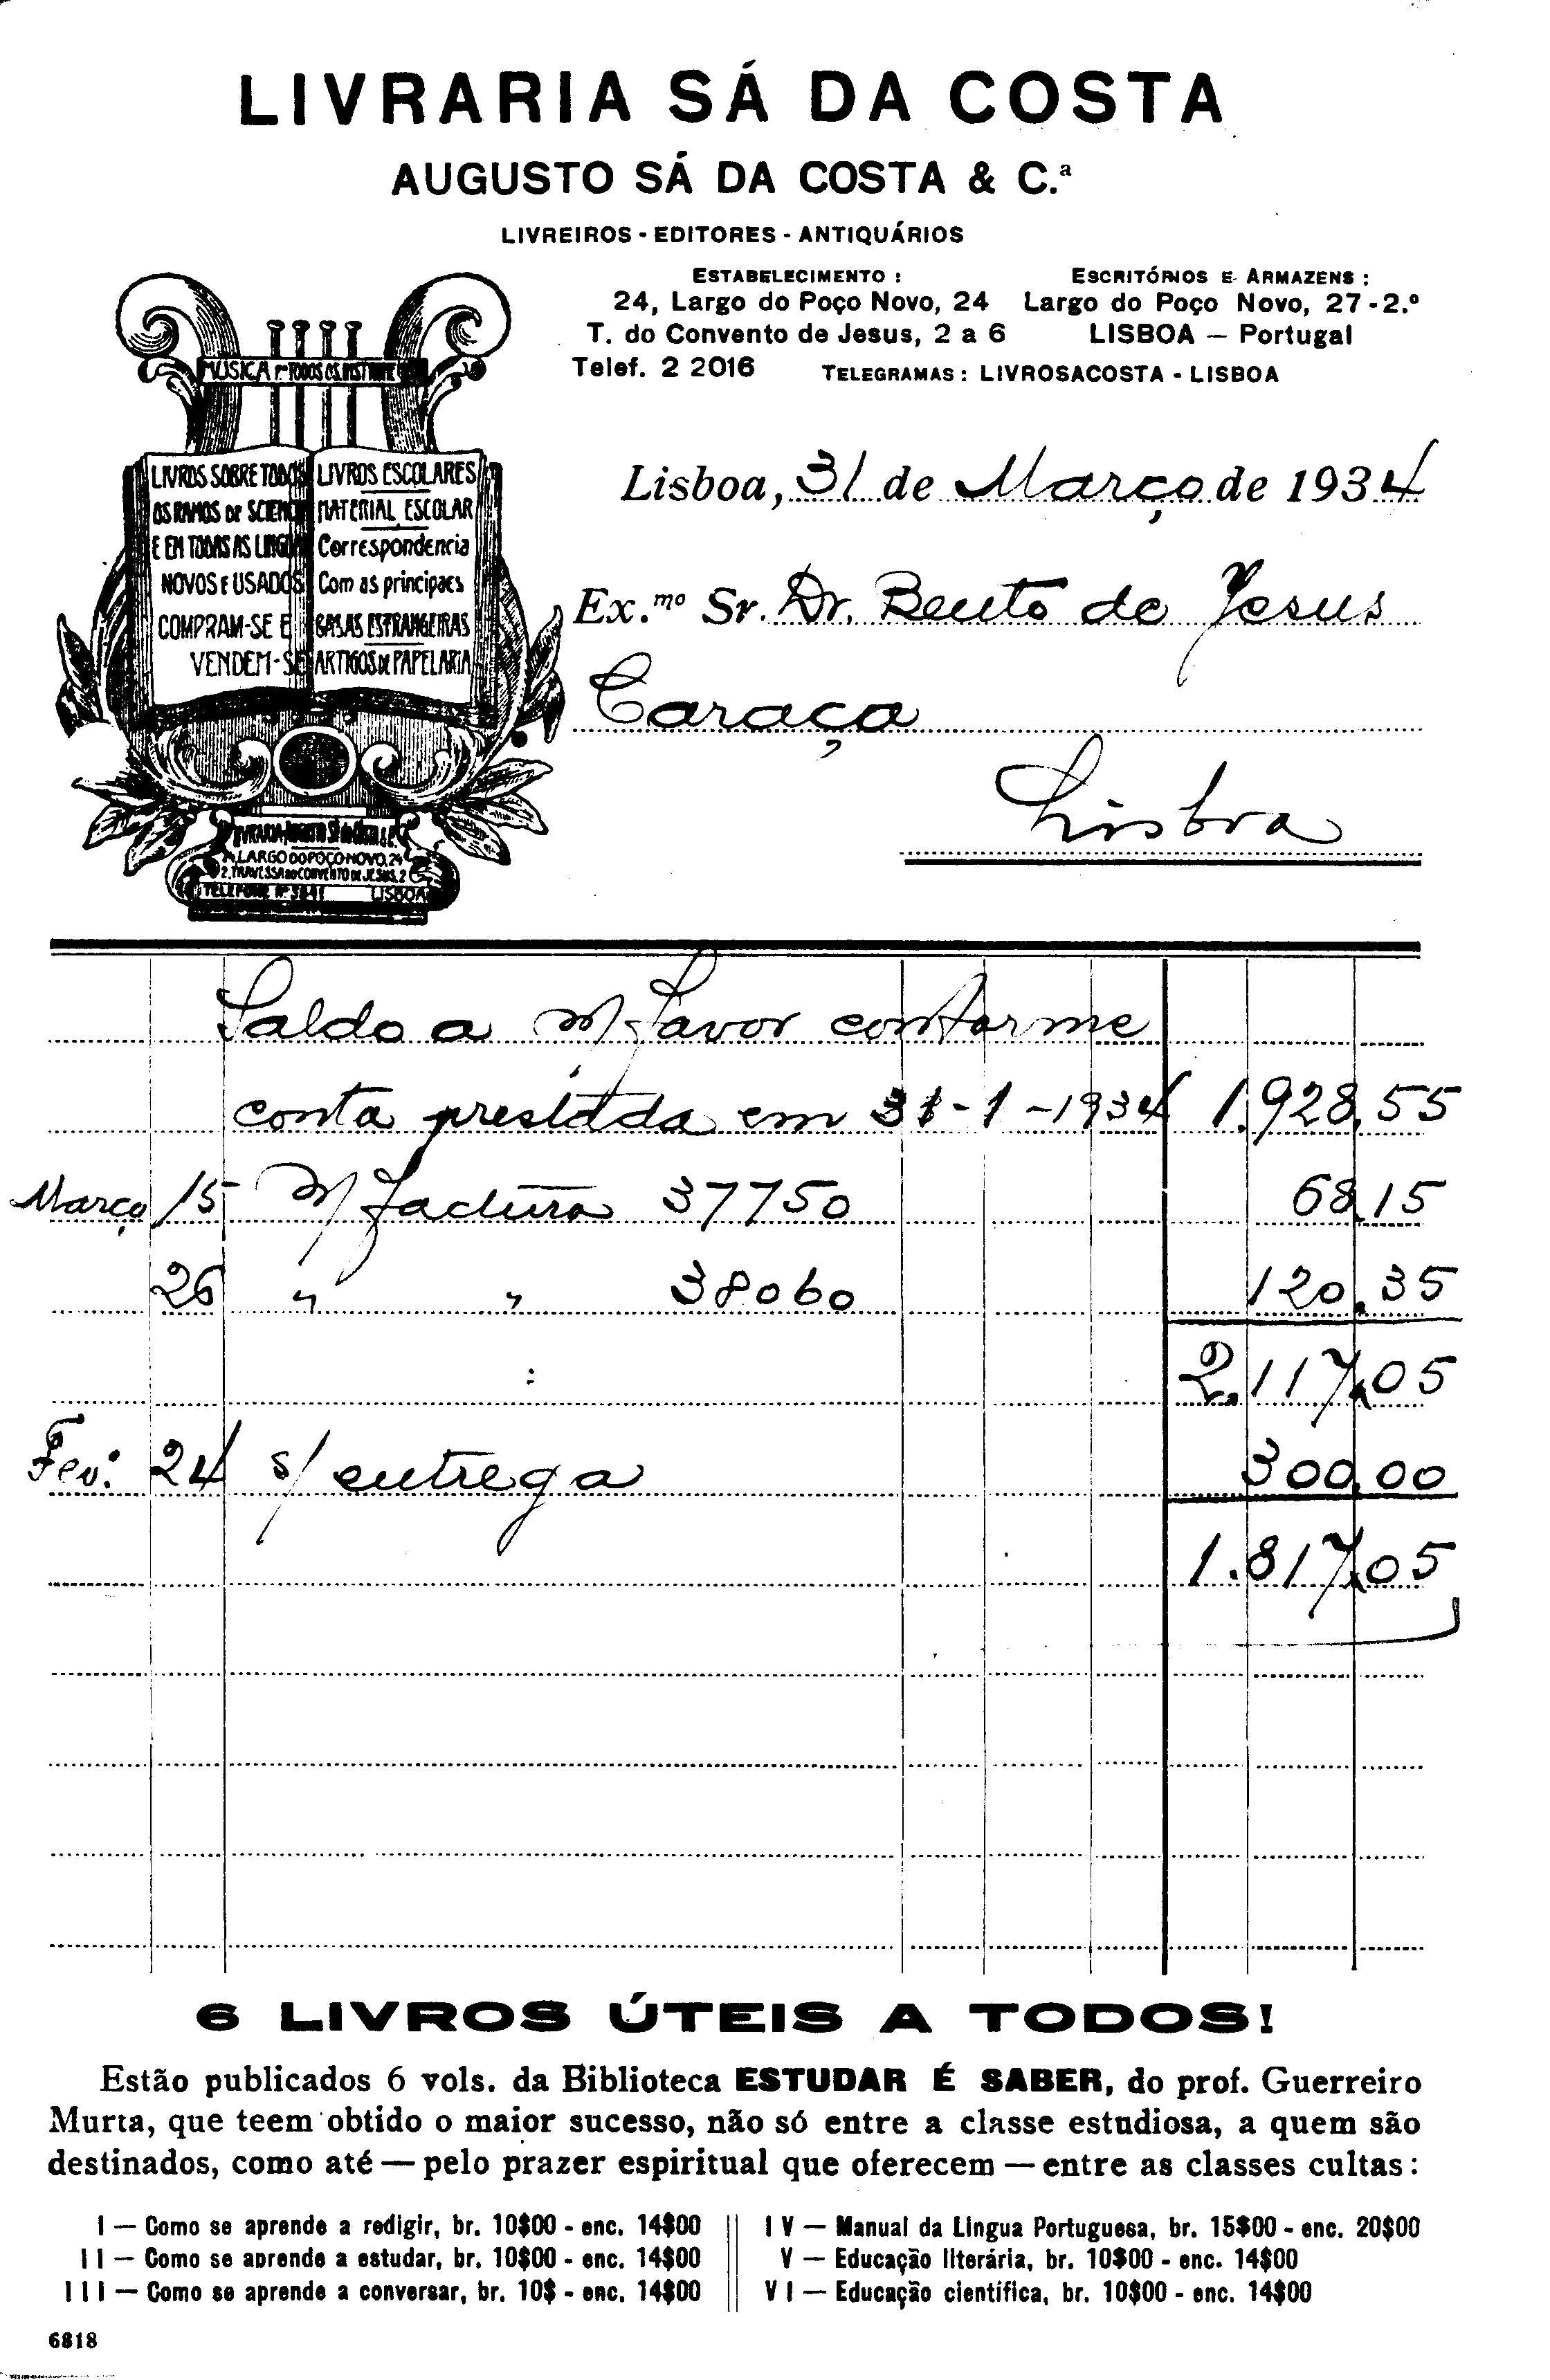 LIVRARIA SÁ DA COSTA
AUGUSTO SÁ DA COSTA & C.ª
LIVREIROS - EDITORES - ANTIQUÁRIOS
ESTABELECIMENTO :
24, Largo do Poço Novo, 24
T. do Convento de Jesus, 2 a 6
ESCRITÓRIOS E ARMAZENS :
Largo do Poço Novo, 27-2.º
LISBOA — Portugal
Telef. 2 2016 TELEGRAMAS : LIVROSACOSTA - LISBOA
MUSICA P.ª TODOS OS
LIVROS SOBRE TODOS
OS RAMOS DE SCIENC
E EM TODAS AS LINGUA
NOVOS E USADOS
COMPRAM-SE E
VENDEM-SE
LIVROS ESCOLARES
MATERIAL ESCOLAR
Correspondencia
Com as principaes
CASAS ESTRANGEIRAS
ARTIGOS DE PAPELARIA
LIVRARIA
LARGO DO POÇO NOVO, 24
2, TRAVESSA DO CONVENTO DE JESUS, 2
TELEFONE Nº LISBOA
Lisboa, 31 de Março de 1934
Ex.mo Sr. Dr. Bento de Jesus
Caraça
Lisboa
Saldo a m/ favor conforme
conta prestada em 31-1-1934 1.928,55
Março 15 m/ factura 37750 68,15
26 " " 38060 120,35
2.117,05
Fev.º 24 s/ entrega 300,00
1.817,05
6 LIVROS ÚTEIS A TODOS!
Estão publicados 6 vols. da Biblioteca ESTUDAR É SABER, do prof. Guerreiro
Murta, que teem obtido o maior sucesso, não só entre a classe estudiosa, a quem são
destinados, como até — pelo prazer espiritual que oferecem — entre as classes cultas :
I — Como se aprende a redigir, br. 10$00 - enc. 14$00
II — Como se aprende a estudar, br. 10$00 - enc. 14$00
III — Como se aprende a conversar, br. 10$ - enc. 14$00
IV — Manual da Lingua Portuguesa, br. 15$00 - enc. 20$00
V — Educação literária, br. 10$00 - enc. 14$00
VI — Educação científica, br. 10$00 - enc. 14$00
6818